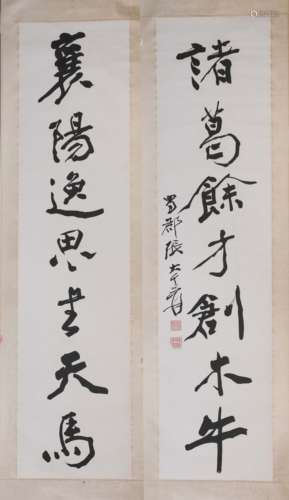 諸葛餘才創木牛
蜀郡張大千爰
襄陽逸思書天馬